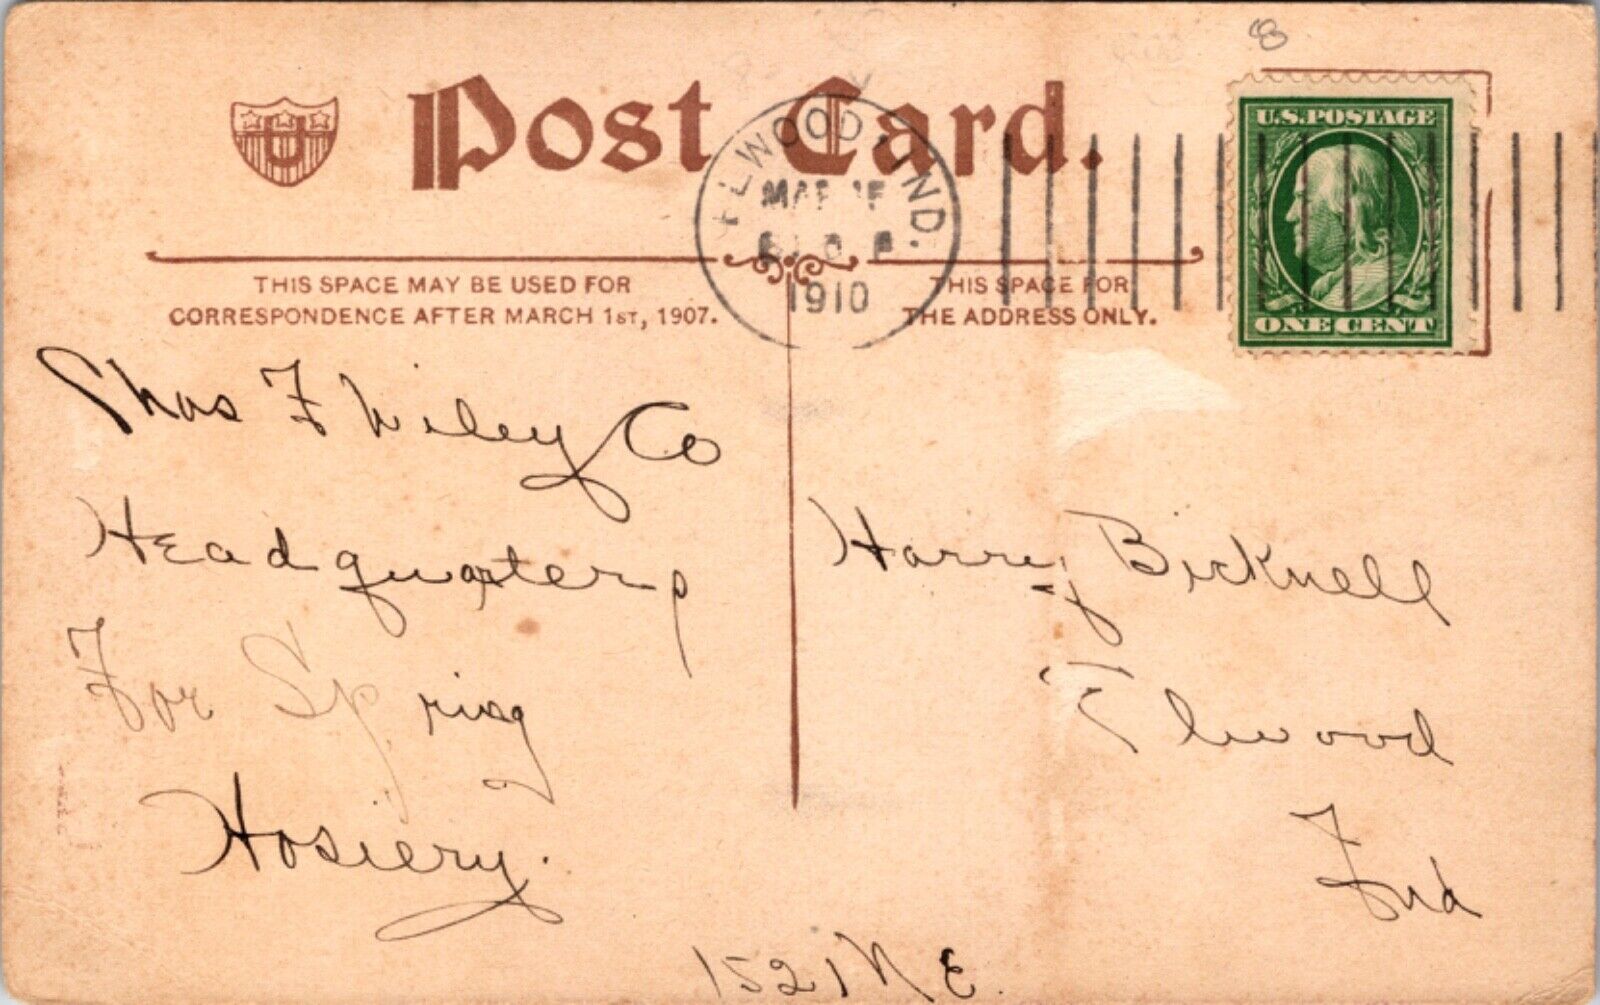 8
Post Card.
ELWOOD, IND.
MAR 15
1910
U.S. POSTAGE
ONE CENT
U
THIS SPACE MAY BE USED FOR
CORRESPONDENCE AFTER MARCH 1ST, 1907.
THIS SPACE FOR
THE ADDRESS ONLY.
Chas F Wiley Co
Headquarters
For Spring
Hosiery.
Harry Bicknell
Elwood
Ind
1521 N E.